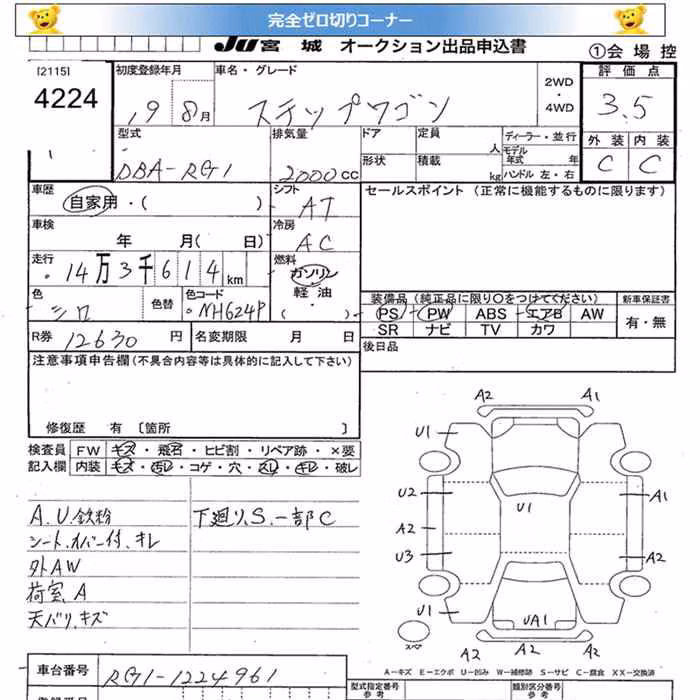 完全ゼロ切りコーナー
JU宮城 オークション出品申込書
①会場控
[2115]
4224
初度登録年月
19 8月
車名・グレード
ステップワゴン
2WD
・
4WD
評価点
3.5
型式
DBA-RG1
排気量
2000cc
ドア
定員
人
形状
積載
kg
ディーラー・並行
モデル年式 年
ハンドル 左・右
外装 内装
C C
車歴
自家用・( )
シフト
AT
セールスポイント (正常に機能するものに限ります)
車検
年 月( 日)
冷房
AC
走行
14万3千614km
燃料
ガソリン
軽油
( )
色
シロ
色替
色コード
NH624P
装備品 (純正品に限り○をつけてください)
PS PW ABS エアB AW
SR ナビ TV カワ
新車保証書
有・無
R券 12630円
名変期限 月 日
後日品
注意事項申告欄 (不具合内容等は具体的に記入して下さい)
修復歴 有 〔箇所 〕
検査員記入欄
FW キズ・飛石・ヒビ割・リペア跡・×要
内装 キズ・汚レ・コゲ・穴・スレ・キレ・破レ
A.U.鉄粉
下廻り.S.一部C
シート.カバー付.キレ
外AW
荷室.A
天バリ.キズ
A2 A1
U1
U1
U2 A1
A2
U3 A2
U1
UA1
スペア
A2 A2 A2
A-キズ E-エクボ U-凹み W-補修跡 S-サビ C-腐食 XX-交換済
車台番号
RG1-1224961
型式指定番号
類別区分番号